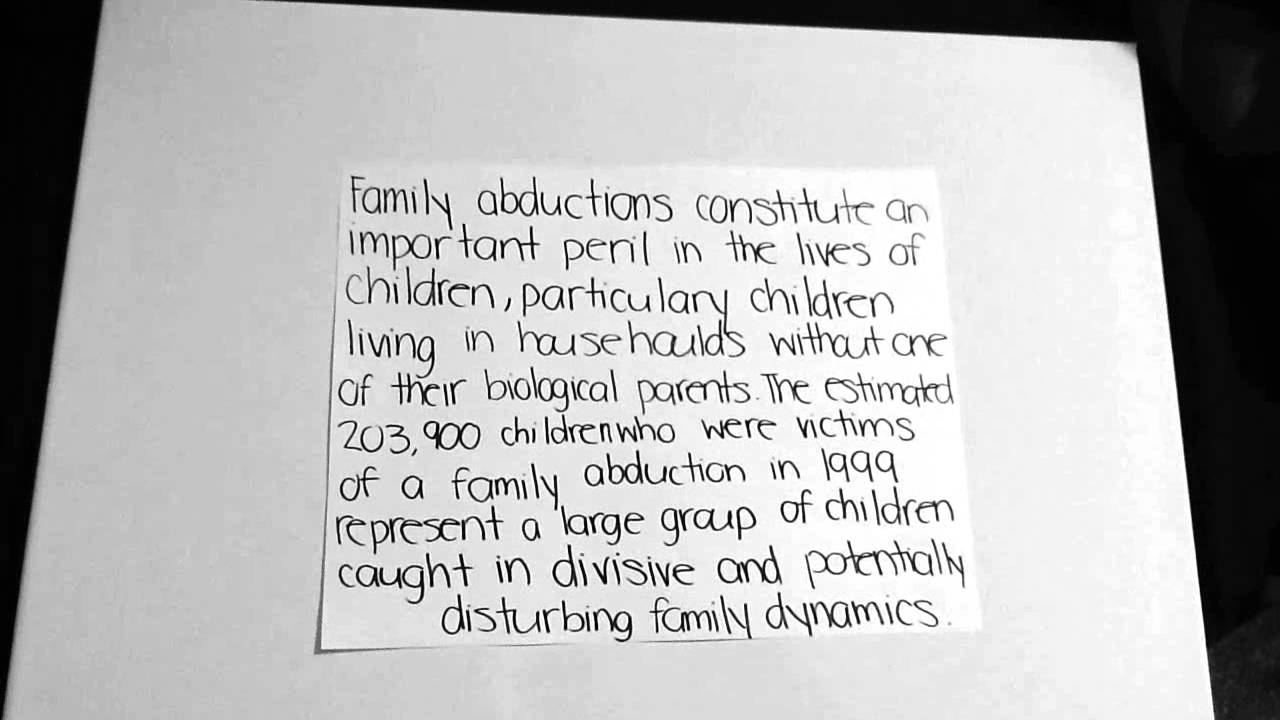 Family abductions constitute an
important peril in the lives of
children, particulary children
living in househoulds without one
of their biological parents. The estimated
203,900 children who were victims
of a family abduction in 1999
represent a large group of children
caught in divisive and potentially
disturbing family dynamics.